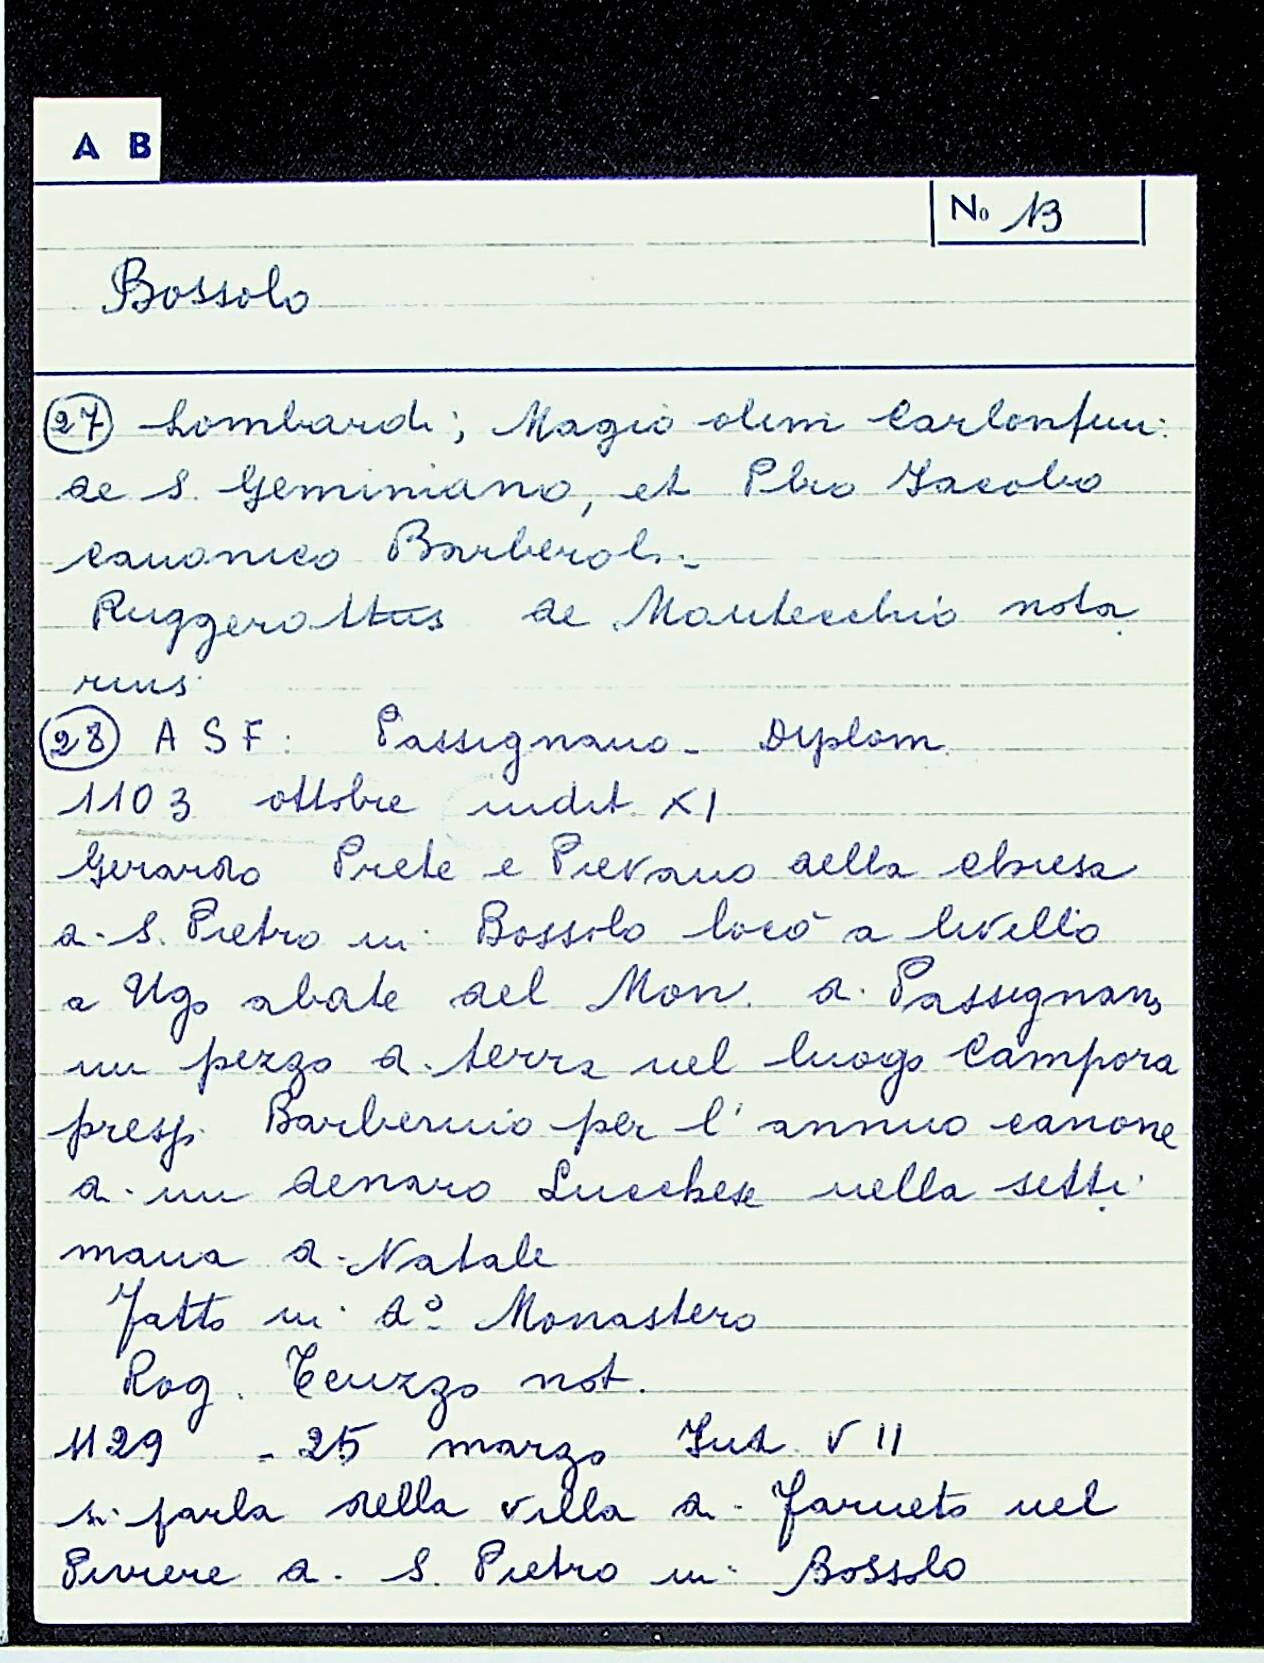 A B
No 13
Bossolo
27 Lombardi; Magio olim Carlonfur:
de S. Geminiano, et Pbro Jacobo
canonico Barberol.-
Ruggerottus de Montecchio nota
rius.
28 ASF: Passignano - Diplom.
1103 ottobre indit. XI
Gerardo Prete e Pievano della chiesa
di S. Pietro in Bossolo locò a livello
a Ugo abate del Mon. di Passignano
un pezzo di terra nel luogo Campora
presso Barberino per l'annuo canone
di un denaro Lucchese nella setti
mana di Natale
Fatto in do Monastero
Rog. Teuzzo not.
1129 - 25 marzo Ind. VII
si parla della villa di Farneto nel
Piviere di S. Pietro in Bossolo